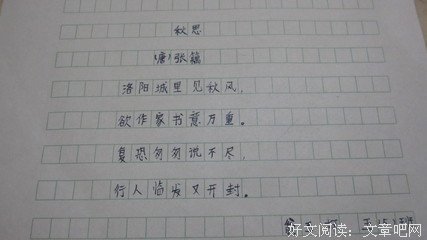 秋思
(唐)张籍
洛阳城里见秋风,
欲作家书意万重。
复恐匆匆说不尽,
行人临发又开封。
五(5)班
好文阅读:文章吧网